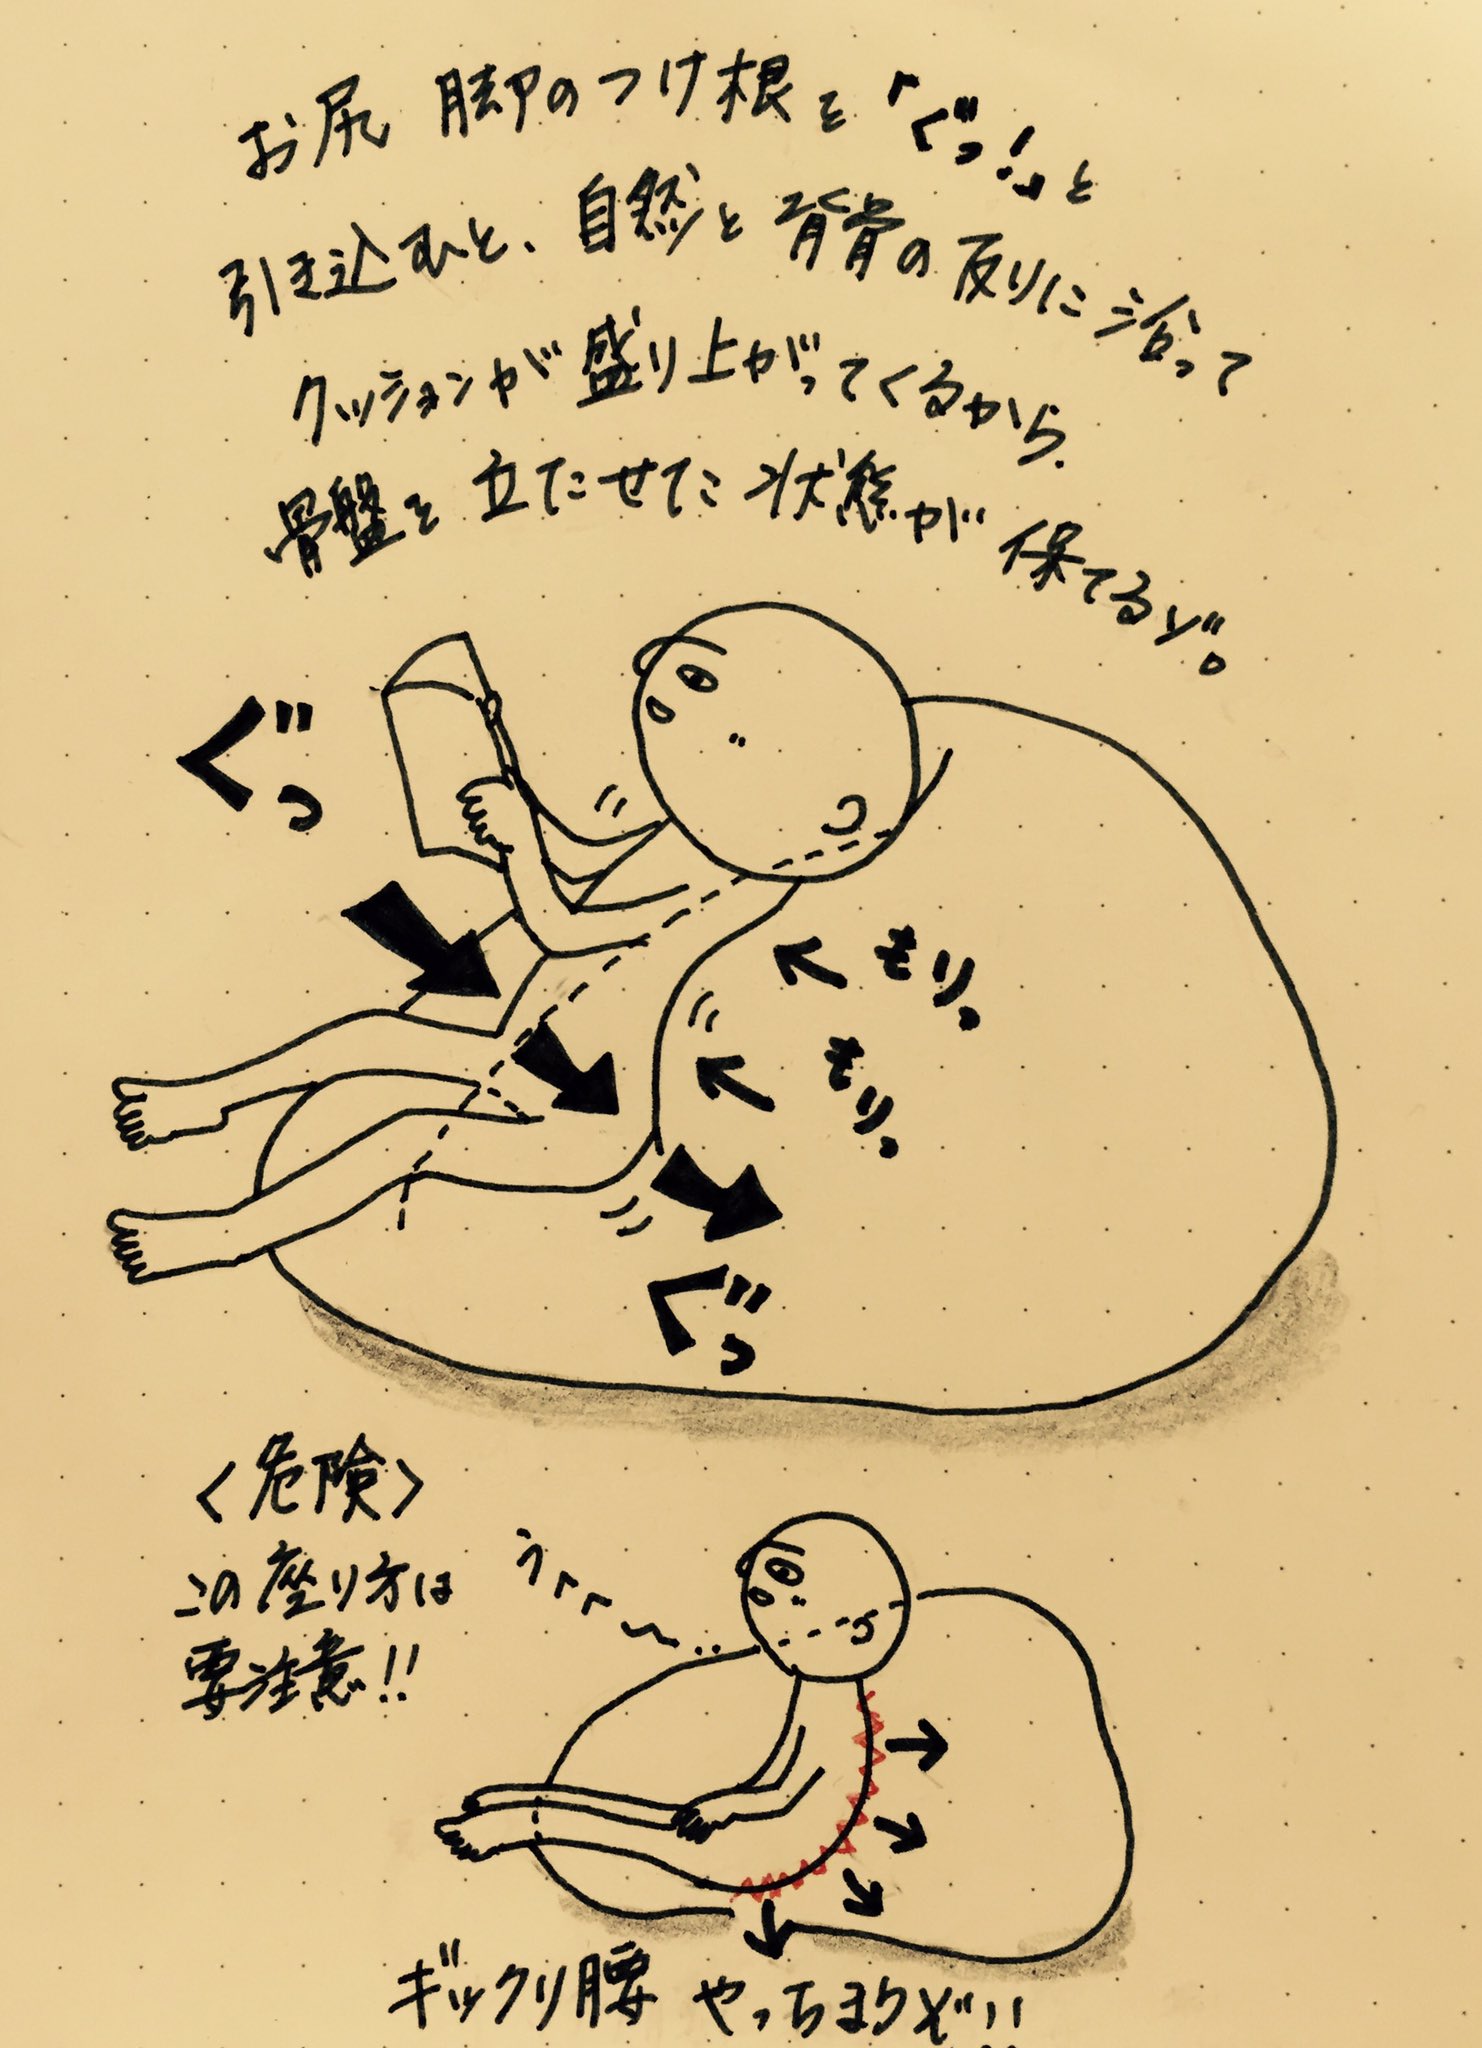 お尻 脚のつけ根を「ぐっ!」と
引き込むと、自然と背骨の反りに沿って
クッションが盛り上がってくるから、
骨盤を立たせた状態が保てるゾ。
ぐっ
もりっ
もりっ
ぐっ
〈危険〉
この座り方は
要注意!!
うぅぅ〜‥
ギックリ腰 やっちまうぞ!!